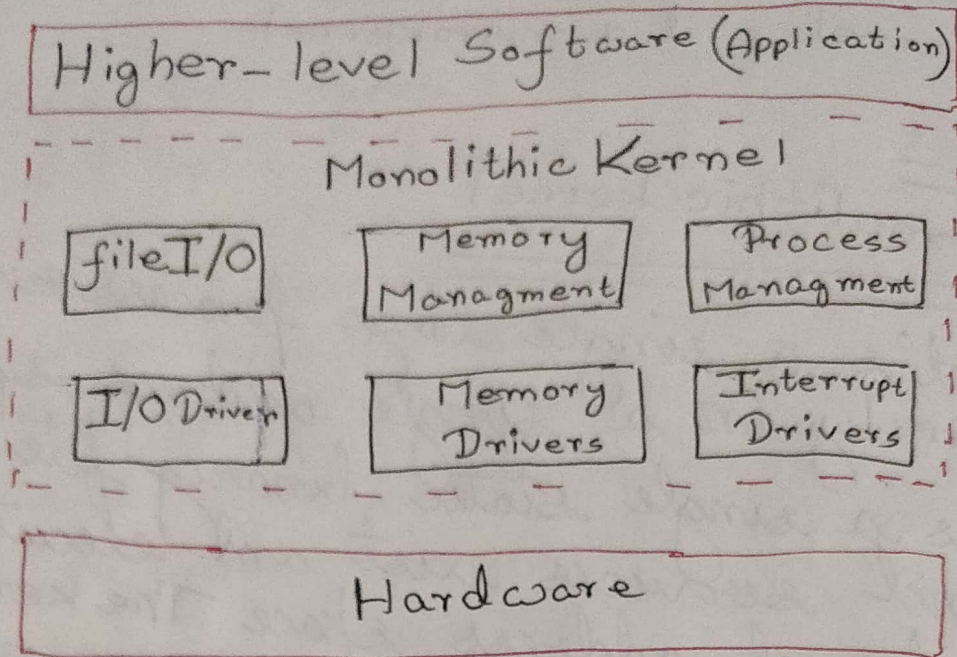 Higher-level Software (Application)
Monolithic Kernel
file I/O
Memory
Managment
Process
Managment
I/O Driver
Memory
Drivers
Interrupt
Drivers
Hardware